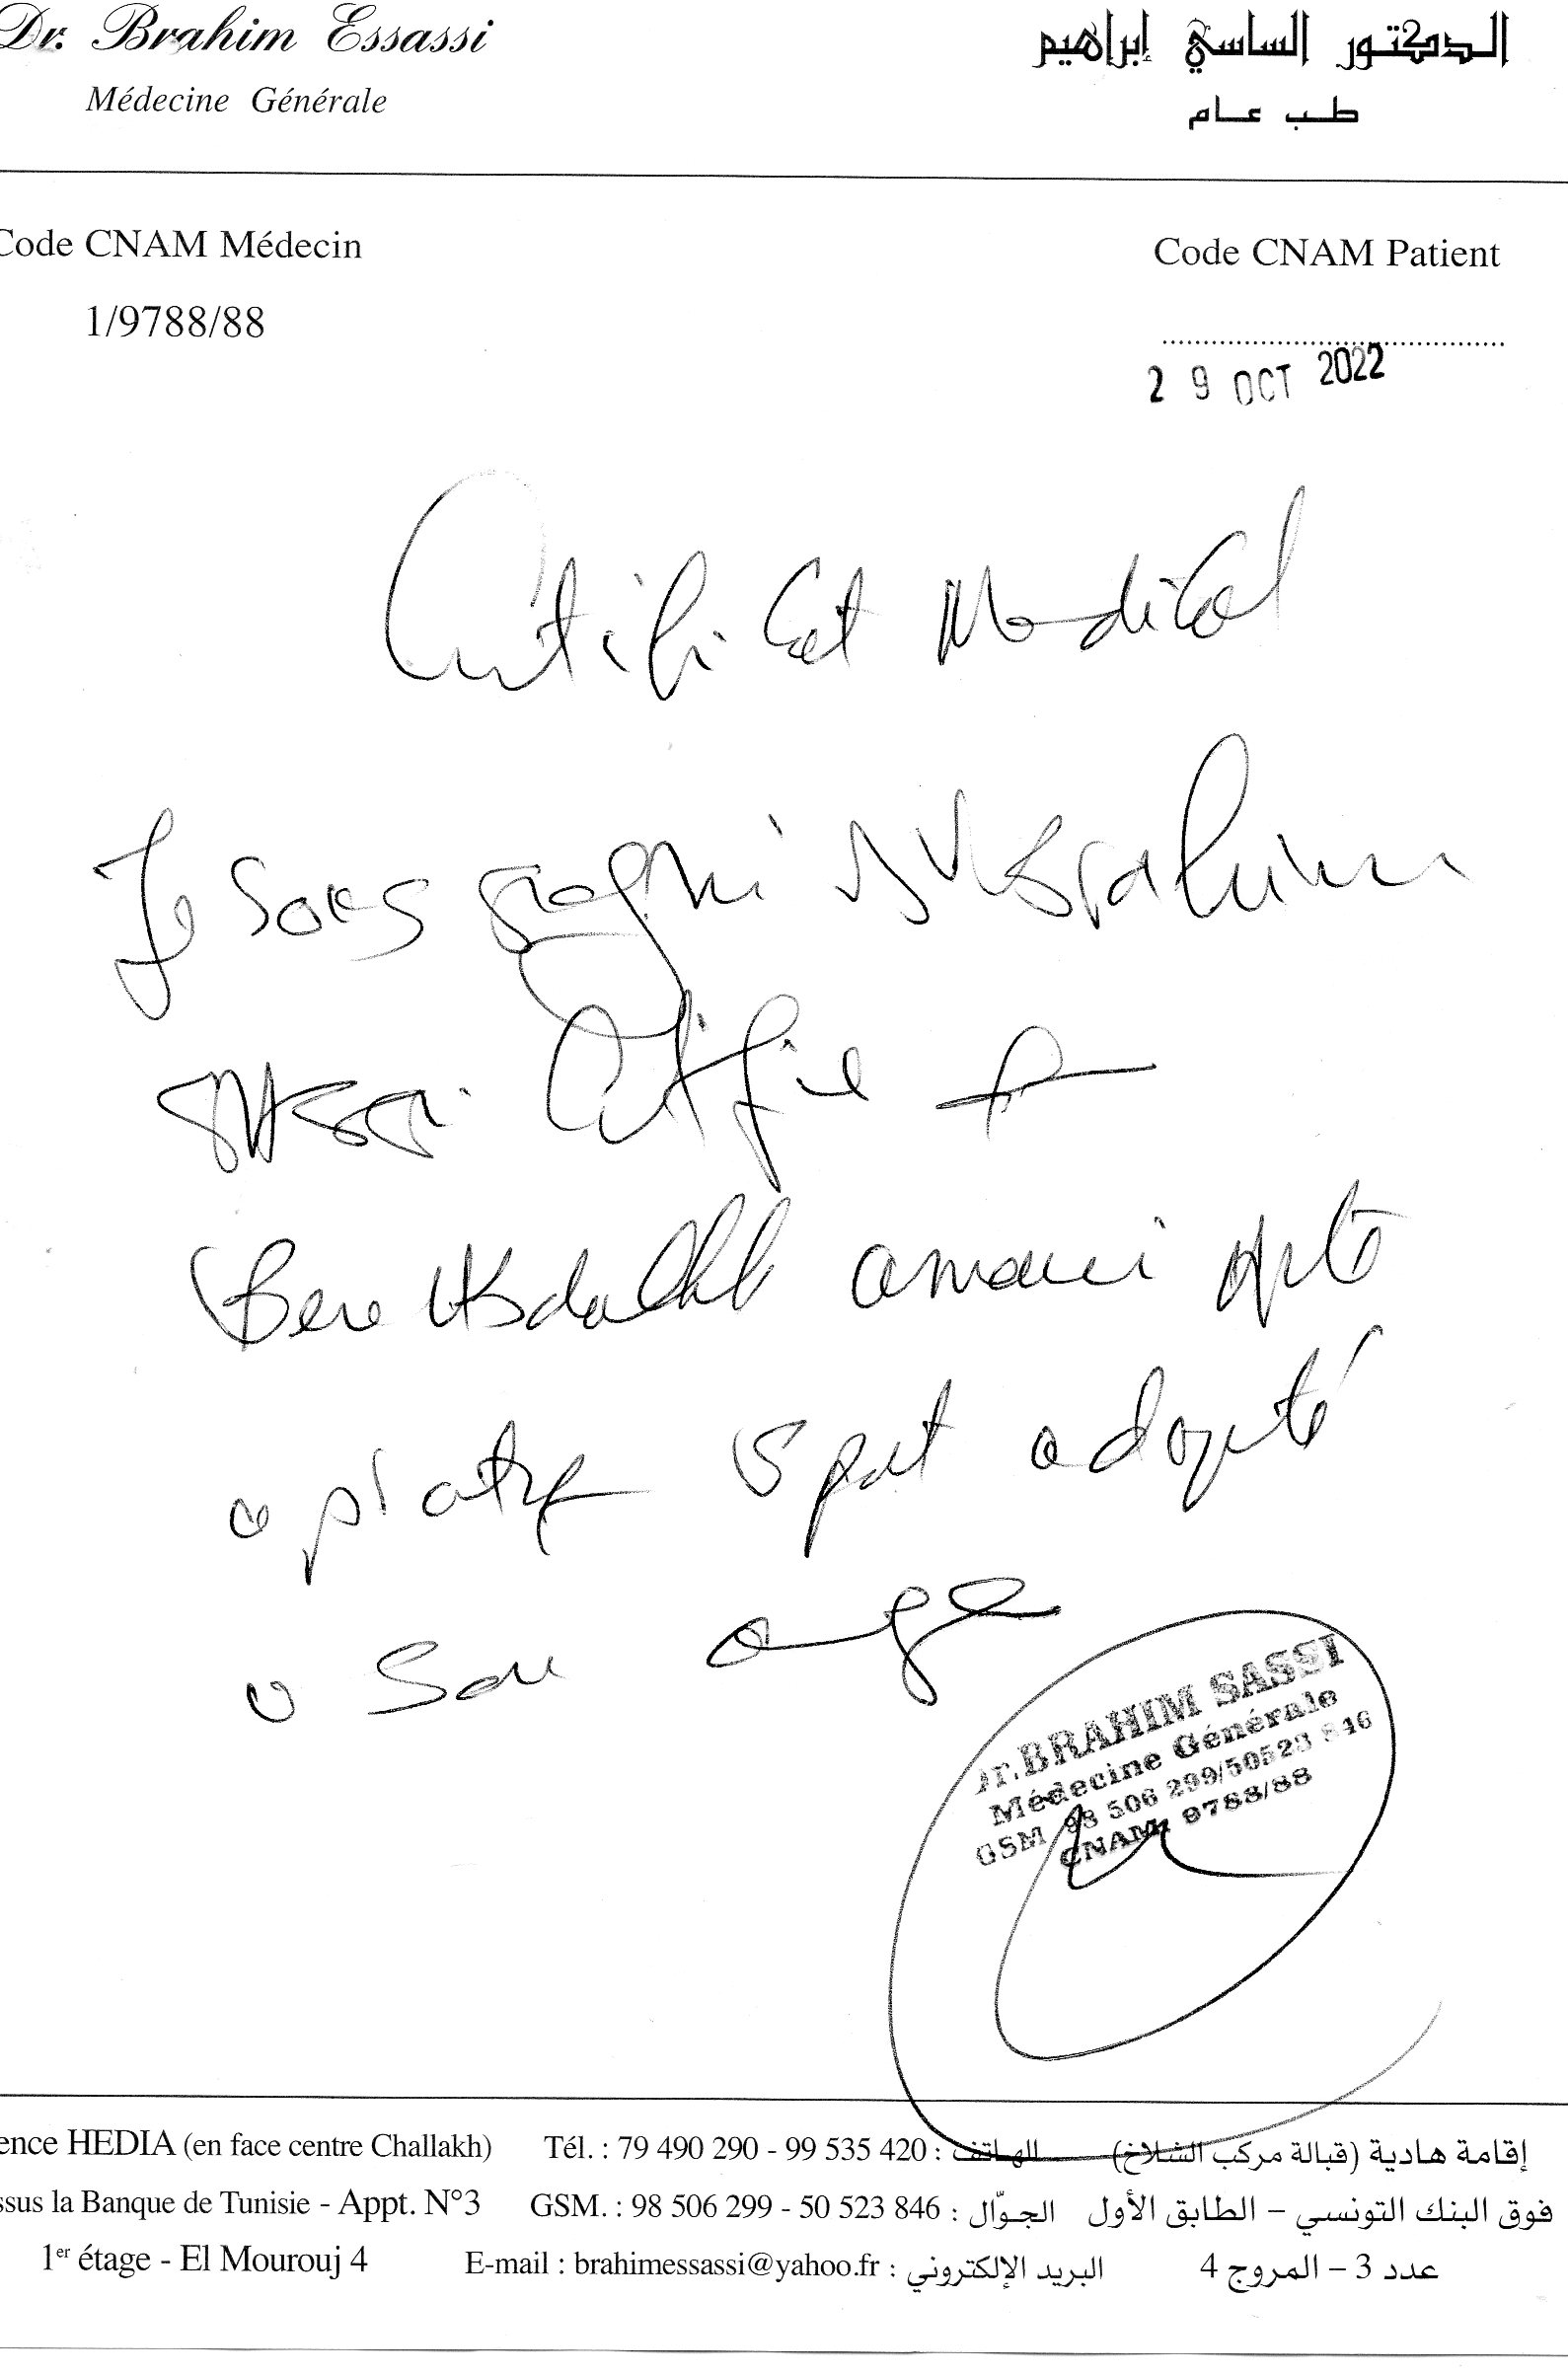 Dr. Brahim Essassi
Médecine Générale
الدكتور الساسي إبراهيم
طب عام
Code CNAM Médecin
1/9788/88
Code CNAM Patient
29 OCT 2022
Certificat Medical
Je soussigné Dr Brahim
Sassi certifie
Ben Abdallah amani apte
a pratique Sport adapté
a Son age
Dr. BRAHIM SASSI
Médecine Générale
GSM 98 506 299/50523 846
CNAM: 9788/88
ence HEDIA (en face centre Challakh)
Tél. : 79 490 290 - 99 535 420 : الهاتف
إقامة هادية (قبالة مركب الشلاخ)
ssus la Banque de Tunisie - Appt. N°3
GSM. : 98 506 299 - 50 523 846 : الجوّال
فوق البنك التونسي – الطابق الأول
1er étage - El Mourouj 4
E-mail : brahimessassi@yahoo.fr : البريد الإلكتروني
عدد 3 – المروج 4